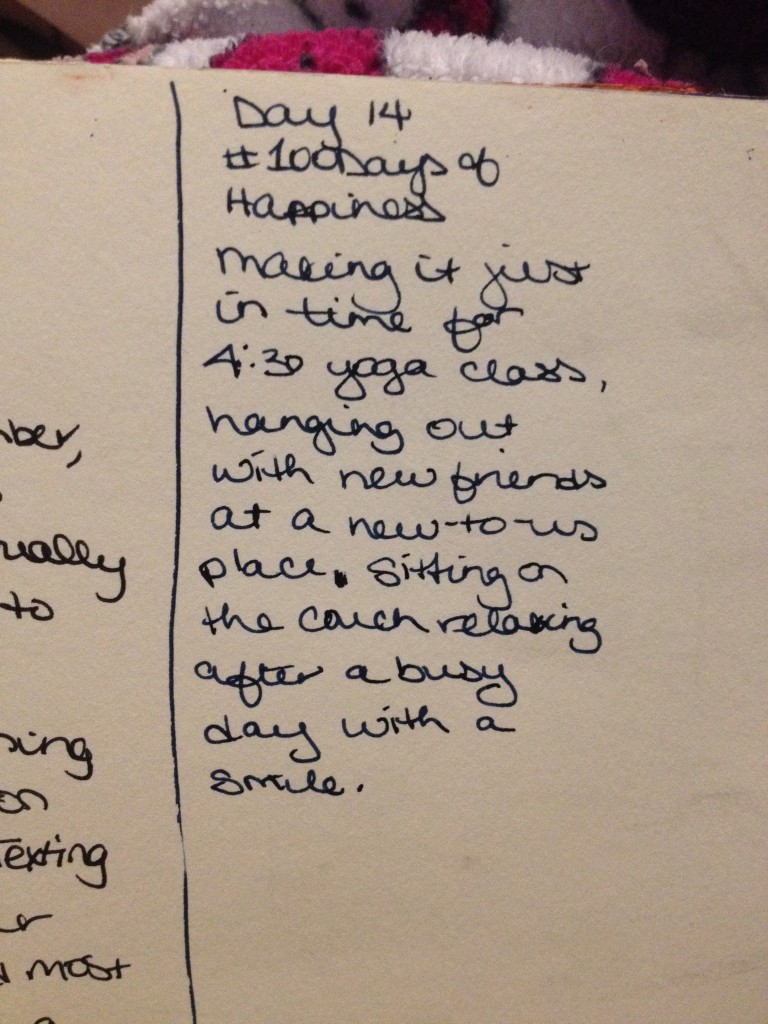 nber,
ually
to
ping
on
Texting
er
most
a
Day 14
#100Days of
Happiness
Making it just
in time for
4:30 yoga class,
hanging out
with new friends
at a new-to-us
place. Sitting on
the couch relaxing
after a busy
day with a
smile.